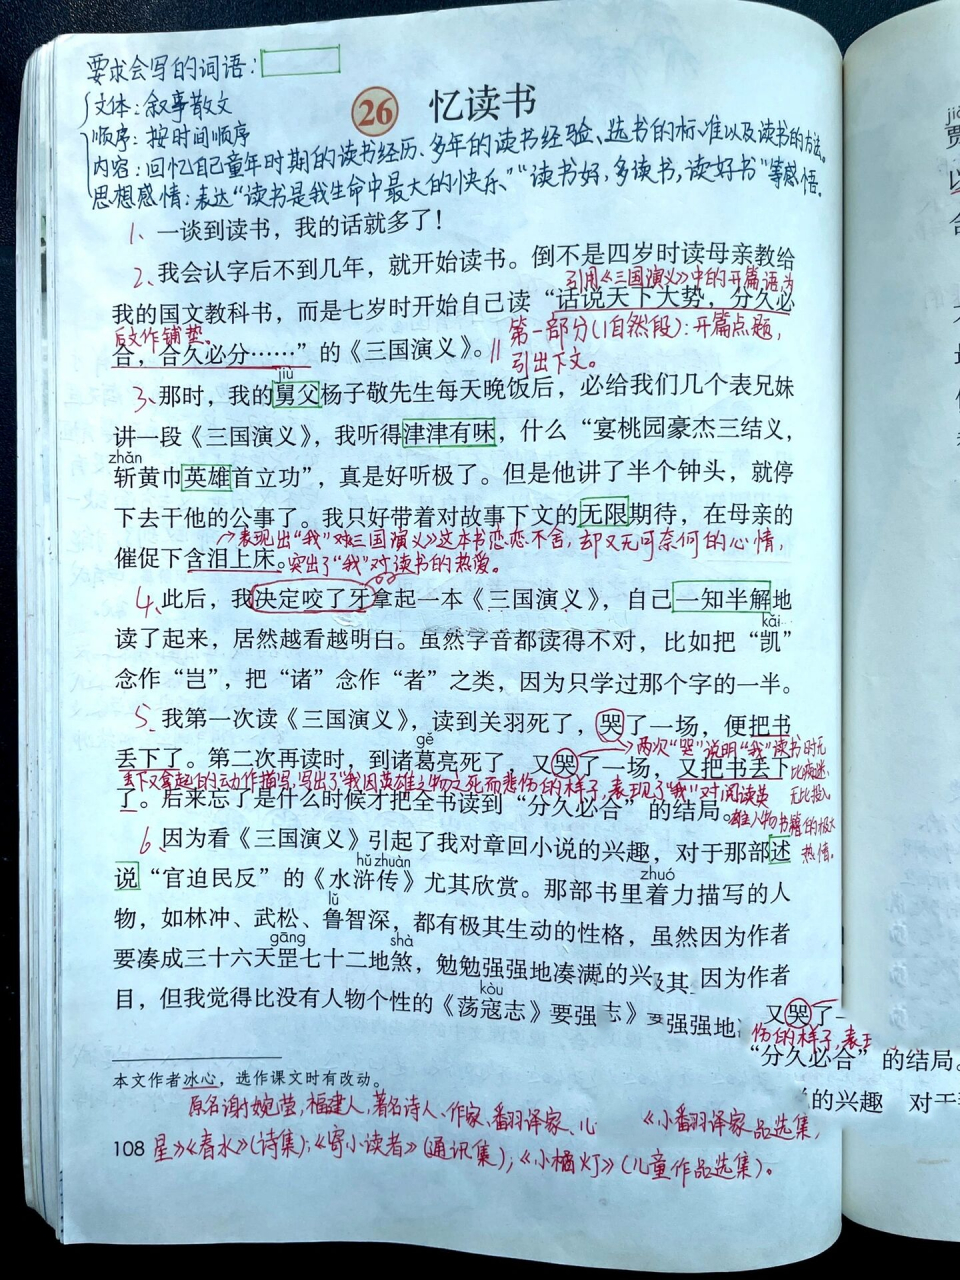 要求会写的词语：
文体：叙事散文
26 忆读书
顺序：按时间顺序
内容：回忆自己童年时期的读书经历、多年的读书经验、选书的标准以及读书的方法。
思想感情：表达“读书是我生命中最大的快乐”“读书好，多读书，读好书”等感悟。
1、一谈到读书，我的话就多了！
2、我会认字后不到几年，就开始读书。倒不是四岁时读母亲教给
引用《三国演义》中的开篇语，为
我的国文教科书，而是七岁时开始自己读“话说天下大势，分久必
后文作铺垫。
第一部分（1自然段）：开篇点题，
合，合久必分……”的《三国演义》。
引出下文。
jiù
3、那时，我的舅父杨子敬先生每天晚饭后，必给我们几个表兄妹
讲一段《三国演义》，我听得津津有味，什么“宴桃园豪杰三结义，
zhǎn
斩黄巾英雄首立功”，真是好听极了。但是他讲了半个钟头，就停
下去干他的公事了。我只好带着对故事下文的无限期待，在母亲的
表现出“我”对《三国演义》这本书恋恋不舍，却又无可奈何的心情，
催促下含泪上床。
突出了“我”对读书的热爱。
4、此后，我决定咬了牙拿起一本《三国演义》，自己一知半解地
kǎi
读了起来，居然越看越明白。虽然字音都读得不对，比如把“凯”
念作“岂”，把“诸”念作“者”之类，因为只学过那个字的一半。
5、我第一次读《三国演义》，读到关羽死了，哭了一场，便把书
gě
两次“哭”说明“我”读书时无
丢下了。第二次再读时，到诸葛亮死了，又哭了一场，又把书丢下
比痴迷、
丢下又拿起的动作描写，写出了“我因英雄人物之死而悲伤的样子，表现了“我”对阅读英
无比投入
了。后来忘了是什么时候才把全书读到“分久必合”的结局。
雄人物书籍的极大
热情。
6、因为看《三国演义》引起了我对章回小说的兴趣，对于那部述
hǔ zhuàn
zhuó
说“官迫民反”的《水浒传》尤其欣赏。那部书里着力描写的人
lǔ
物，如林冲、武松、鲁智深，都有极其生动的性格，虽然因为作者
gāng
shà
要凑成三十六天罡七十二地煞，勉勉强强地凑满的兴及其 因为作者
kòu
目，但我觉得比没有人物个性的《荡寇志》要强志》要强强地
又哭了一
伤的样子，表王
“分久必合”的结局。
的兴趣 对于
本文作者冰心，选作课文时有改动。
原名谢婉莹，福建人，著名诗人、作家、翻译家、儿 《小翻译家品选集，
108 星》《春水》（诗集）；《寄小读者》（通讯集）；《小橘灯》（儿童作品选集）。
jiǎ
贾